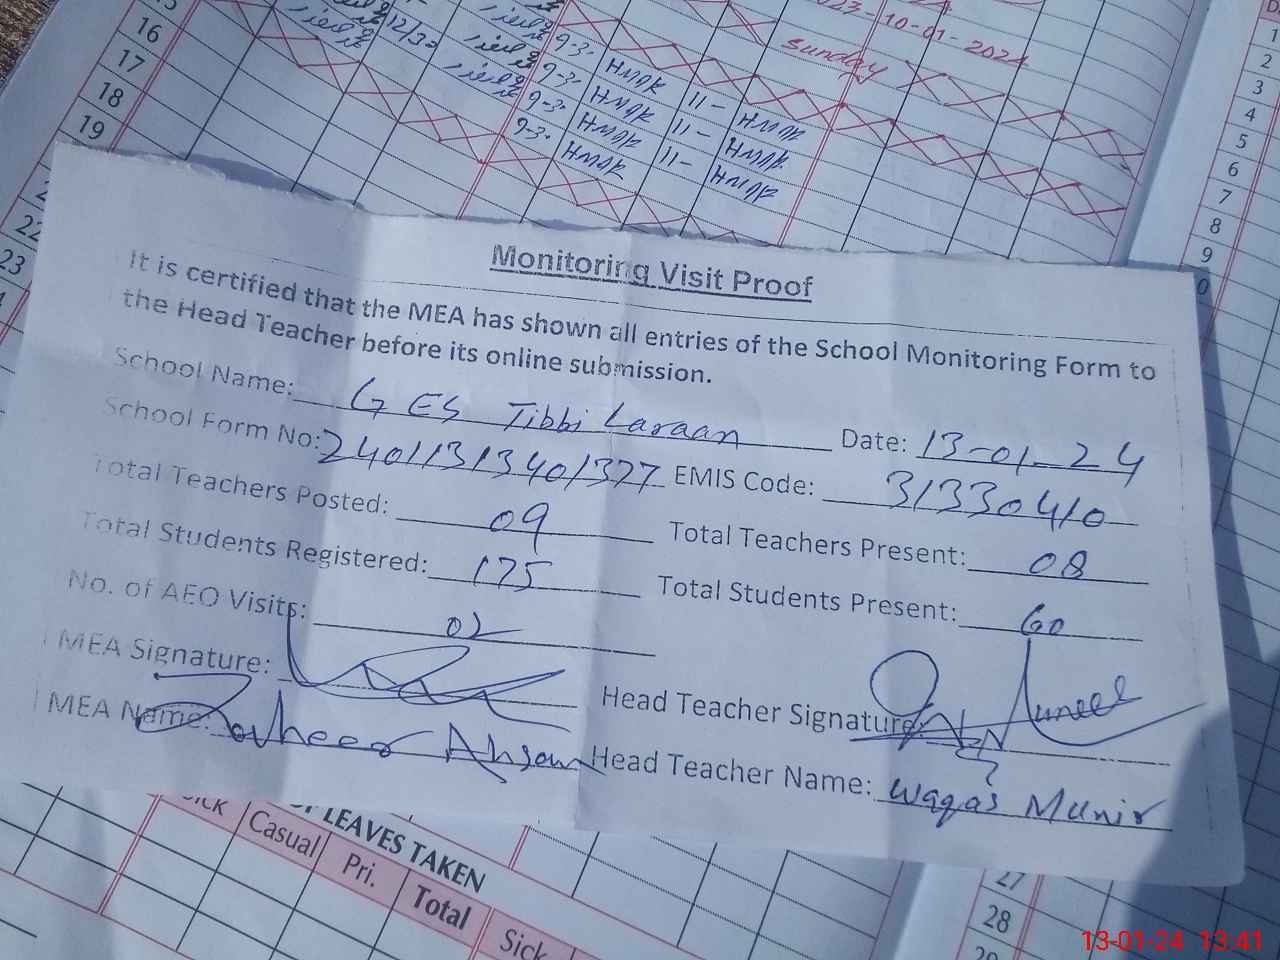 16
17
18
19
12/30
9-3.
9-3.
9-3.
9-3.
HMDK
HMDK
HMDK
HMDK
11-
11-
11-
HMDK
HMDK
HMDK
10-01-2024
Sunday
1
2
3
4
5
6
7
8
9
22
23
Monitoring Visit Proof
It is certified that the MEA has shown all entries of the School Monitoring Form to
the Head Teacher before its online submission.
School Name: GES Tibbi Laraan Date: 13-01-24
School Form No: 2401131340 1377 EMIS Code: 31330410
Total Teachers Posted: 09 Total Teachers Present: 08
Total Students Registered: 175 Total Students Present: 60
No. of AEO Visits: 02
MEA Signature: Head Teacher Signature: Muneeb
MEA Name: Zaheer Ahsan Head Teacher Name: Waqas Munir
Sick Casual Pri. Total Sick
LEAVES TAKEN
27
28
13-01-24 13:41